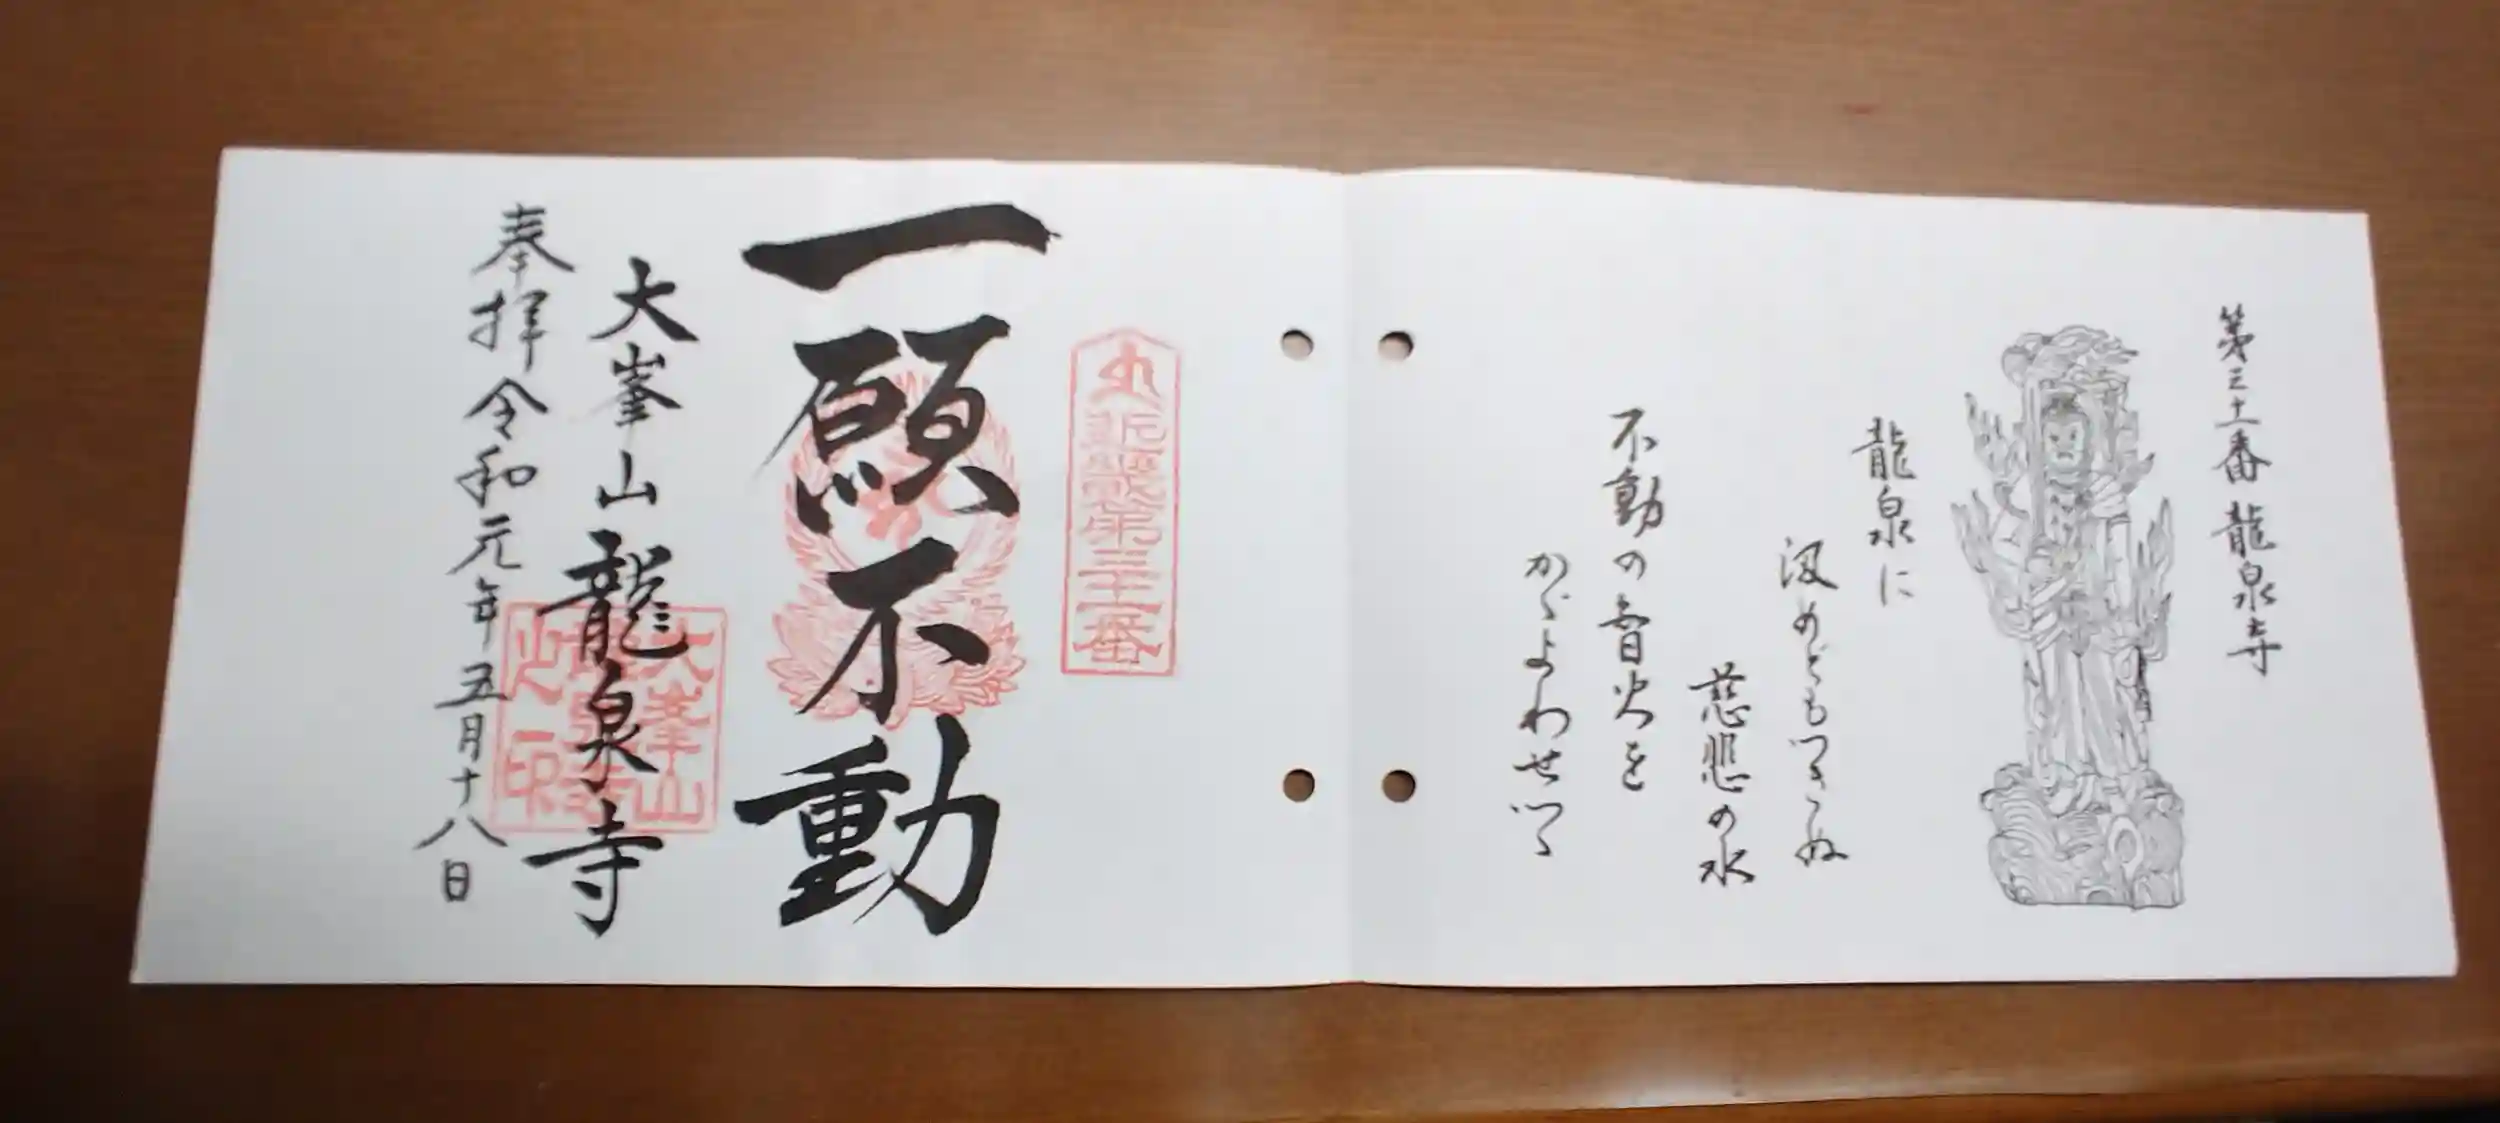 第三十一番 龍泉寺
龍泉に
汲めどもつきぬ
慈悲の水
不動の智火を
かゞよわせつゝ
近畿第三十一番
一願不動
大峯山龍泉寺
大峯山龍泉寺之印
奉拝 令和元年五月十八日